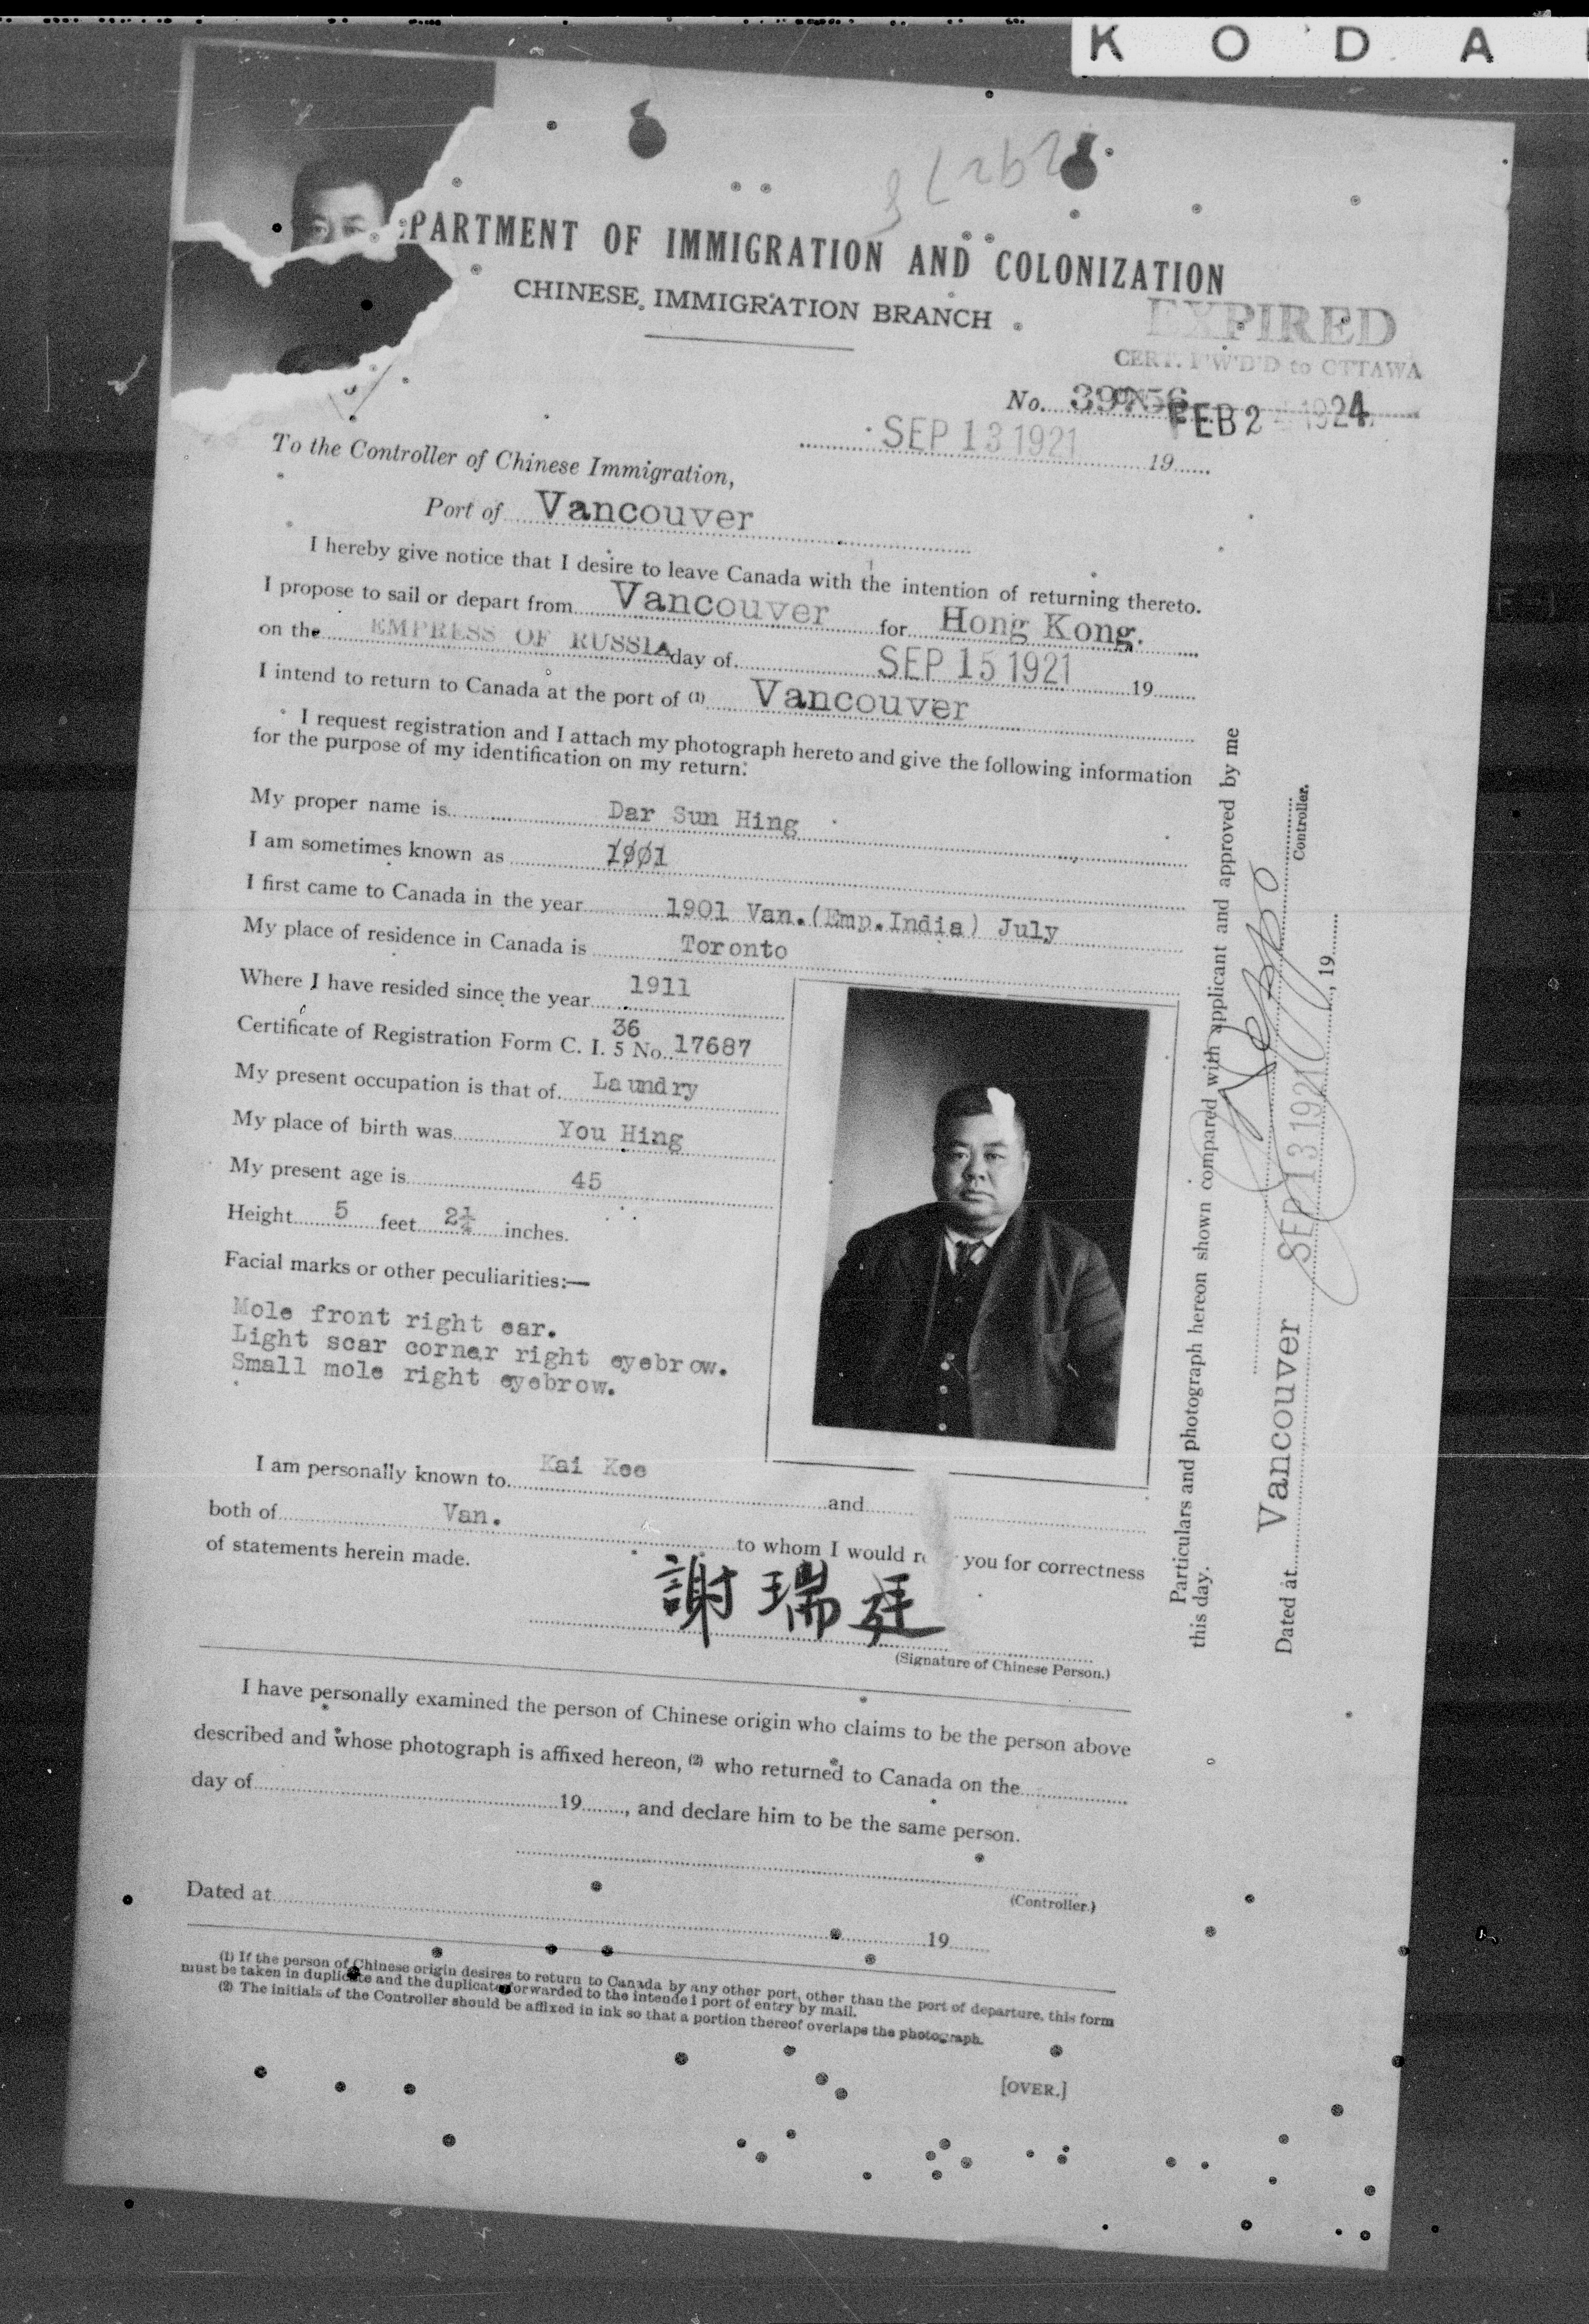 K O D A
DEPARTMENT OF IMMIGRATION AND COLONIZATION
CHINESE IMMIGRATION BRANCH
EXPIRED
CERT. F'W'D'D to OTTAWA
No.
FEB 2 1924
SEP 13 1921 19
To the Controller of Chinese Immigration,
Port of Vancouver
I hereby give notice that I desire to leave Canada with the intention of returning thereto.
I propose to sail or depart from Vancouver for Hong Kong.
on the EMPRESS OF RUSSIA day of SEP 15 1921 19
I intend to return to Canada at the port of (1) Vancouver
I request registration and I attach my photograph hereto and give the following information
for the purpose of my identification on my return:
My proper name is Dar Sun Hing
I am sometimes known as 1901
I first came to Canada in the year 1901 Van.(Emp.India) July
My place of residence in Canada is Toronto
Where I have resided since the year 1911
36
Certificate of Registration Form C. I. 5 No. 17687
My present occupation is that of Laundry
My place of birth was You Hing
My present age is 45
Height 5 feet 2¼ inches.
Facial marks or other peculiarities:—
Mole front right ear.
Light scar corner right eyebrow.
Small mole right eyebrow.
I am personally known to Kai Kee and
both of Van. to whom I would you for correctness
of statements herein made.
謝瑞廷
(Signature of Chinese Person.)
I have personally examined the person of Chinese origin who claims to be the person above
described and whose photograph is affixed hereon, (2) who returned to Canada on the
day of 19 , and declare him to be the same person.
(Controller.)
Dated at 19
(1) If the person of Chinese origin desires to return to Canada by any other port, other than the port of departure, this form
must be taken in duplicate and the duplicate forwarded to the intended port of entry by mail.
(2) The initials of the Controller should be affixed in ink so that a portion thereof overlaps the photograph.
[OVER.]
Particulars and photograph hereon shown compared with applicant and approved by me
this day.
Controller.
Dated at Vancouver SEP 13 1921 , 19